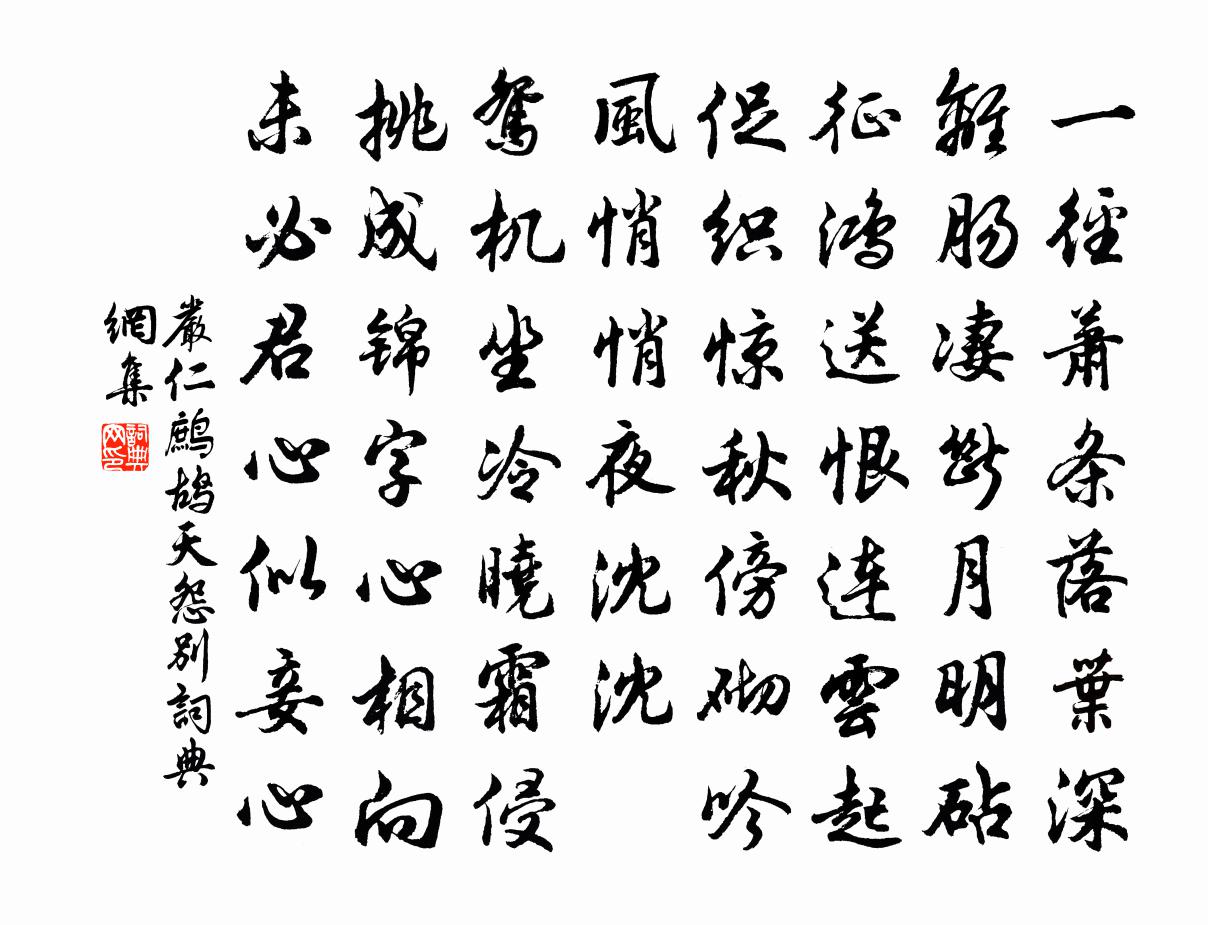 一徑蕭条落葉深
離肠凄断月明砧
征鸿送恨连雲起
促织惊秋傍砌吟
風悄悄夜沈沈
鸳机坐冷曉霜侵
挑成锦字心相向
未必君心似妾心
嚴仁鷓鴣天怨别詞典
網集
詞典
网印